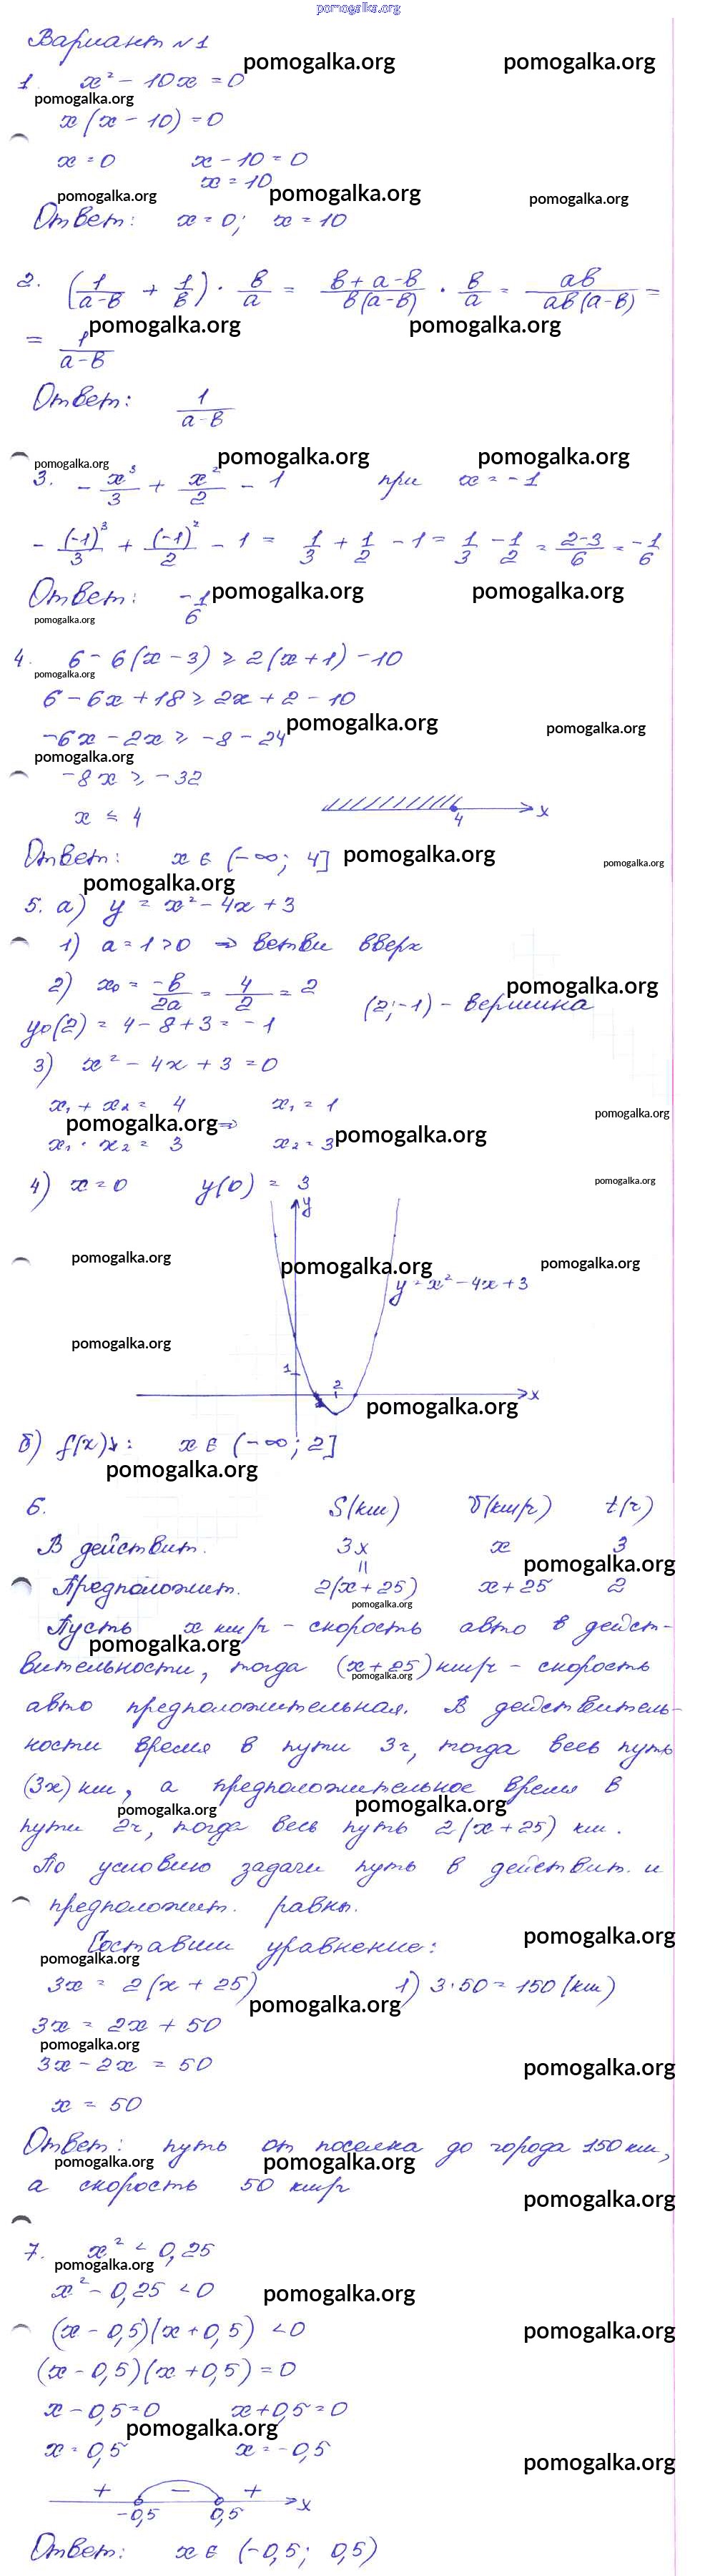 pomogalka.org
Вариант №1
pomogalka.org pomogalka.org
1. x² - 10x = 0
pomogalka.org
x(x - 10) = 0
x = 0 x - 10 = 0
x = 10
pomogalka.org pomogalka.org pomogalka.org
Ответ: x = 0; x = 10
2. (1/(a-в) + 1/в) · в/a = (в+a-в)/(в(a-в)) · в/a = aв/(aв(a-в)) =
pomogalka.org pomogalka.org
= 1/(a-в)
Ответ: 1/(a-в)
pomogalka.org pomogalka.org pomogalka.org
3. - x³/3 + x²/2 - 1 при x = -1
- (-1)³/3 + (-1)²/2 - 1 = 1/3 + 1/2 - 1 = 1/3 - 1/2 = (2-3)/6 = -1/6
Ответ: -1/6
pomogalka.org pomogalka.org
pomogalka.org
4. 6 - 6(x - 3) ≥ 2(x + 1) - 10
pomogalka.org
6 - 6x + 18 ≥ 2x + 2 - 10
pomogalka.org pomogalka.org
-6x - 2x ≥ -8 - 24
pomogalka.org
-8x ≥ -32
x ≤ 4
4 x
Ответ: x ∈ (-∞; 4]
pomogalka.org pomogalka.org
pomogalka.org
5. а) y = x² - 4x + 3
1) a = 1 > 0 ⇒ ветви вверх
2) x₀ = -в/2a = 4/2 = 2
pomogalka.org
(2; -1) - вершина
y₀(2) = 4 - 8 + 3 = -1
3) x² - 4x + 3 = 0
x₁ + x₂ = 4 x₁ = 1
pomogalka.org
pomogalka.org ⇒ pomogalka.org
x₁ · x₂ = 3 x₂ = 3
4) x = 0 y(0) = 3
pomogalka.org
y
pomogalka.org pomogalka.org pomogalka.org
y = x² - 4x + 3
pomogalka.org
1 2 x
pomogalka.org
б) f(x)↓: x ∈ (-∞; 2]
pomogalka.org
6. S(км) V(км/ч) t(ч)
В действит. 3x x 3
= pomogalka.org
Предположит. 2(x + 25) x + 25 2
pomogalka.org
Пусть x км/ч - скорость авто в дейст-
pomogalka.org
вительности, тогда (x + 25) км/ч - скорость
pomogalka.org
авто предположительная. В действитель-
ности время в пути 3ч, тогда весь путь
(3x) км, а предположительное время в
pomogalka.org pomogalka.org
пути 2ч, тогда весь путь 2(x + 25) км.
По условию задачи путь в действит. и
предположит. равны.
pomogalka.org
Составим уравнение:
pomogalka.org
3x = 2(x + 25) 1) 3 · 50 = 150 (км)
pomogalka.org
3x = 2x + 50
pomogalka.org
3x - 2x = 50
pomogalka.org
x = 50
Ответ: путь от поселка до города 150 км,
pomogalka.org pomogalka.org
а скорость 50 км/ч
pomogalka.org
7. x² < 0,25
pomogalka.org
x² - 0,25 < 0
pomogalka.org
(x - 0,5)(x + 0,5) < 0
pomogalka.org
(x - 0,5)(x + 0,5) = 0
x - 0,5 = 0 x + 0,5 = 0
pomogalka.org
x = 0,5 x = -0,5
pomogalka.org
+ - +
-0,5 0,5 x
Ответ: x ∈ (-0,5; 0,5)